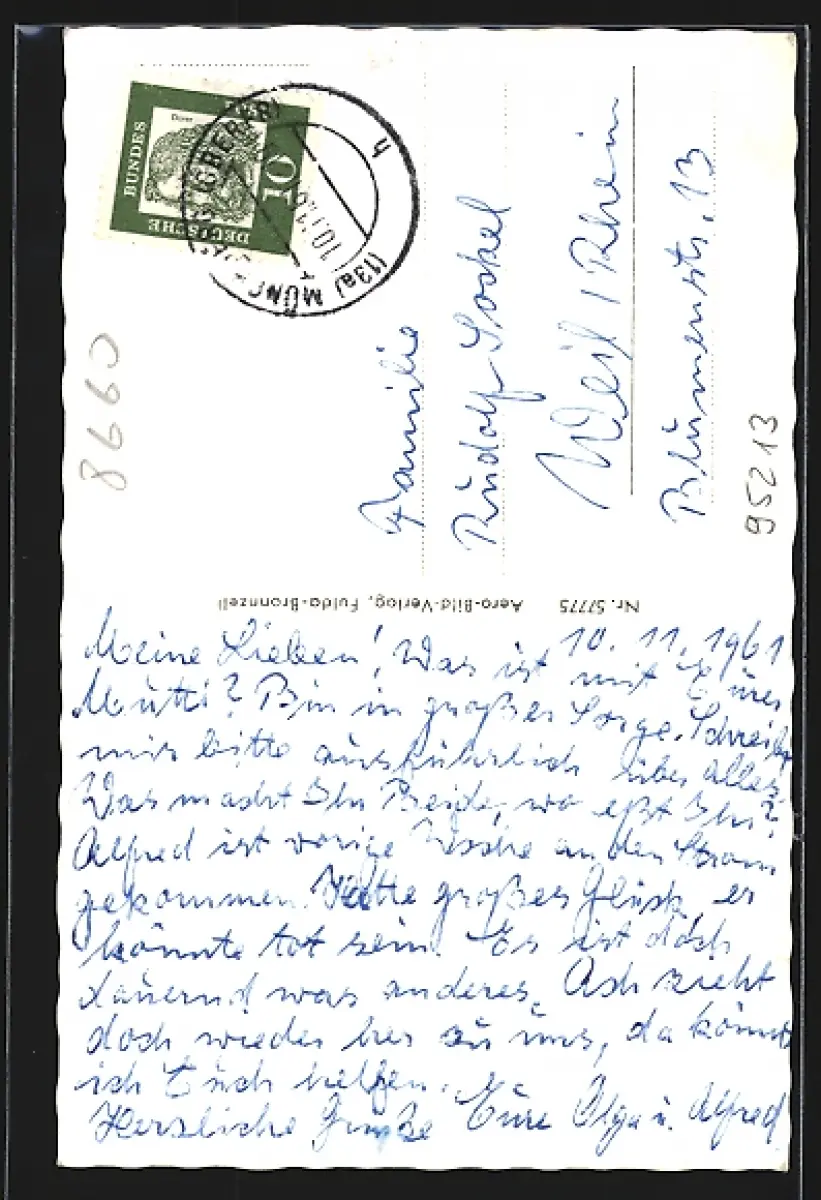 10
DEUTSCHE
BUNDES
Dürer
(13a) MÜNCHBERG
10.11.
h
8660
Familie
Rudolf Sockel
Weil / Rhein
Blumenstr. 13
95213
Nr. 57775 Aero-Bild-Verlag, Fulda-Bronnzell
10. 11. 1961
Meine Lieben! Was ist mit Eurer
Mutti? Bin in großer Sorge. Schreibt
mir bitte ausführlich über alles.
Was macht Ihr Beide, wo eßt Ihr?
Alfred ist vorige Woche an den Strom
gekommen. Hatte großes Glück, er
könnte tot sein. Es ist doch
dauernd was anderes. Ach zieht
doch wieder her zu uns, da könnt
ich Euch helfen.
Herzliche Grüße Eure Olga u. Alfred